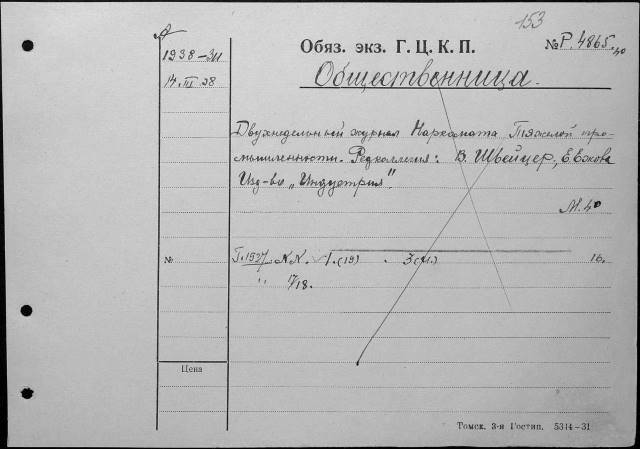 153
1938-311
14.III.38
Обяз. экз. Г. Ц. К. П.
№ Р. 4865. 40
Общественница.
Двухнедельный журнал Наркомата Тяжелой про-
мышленности. Редколлегия: В. Швейцер, Е. Ежова
Изд-во „Индустрия".
М. 40
№
1937 NN. 1.(19) - 3(21). 16.
" 17/18.
Цена
Томск. 3-я Гостип. 5314-31